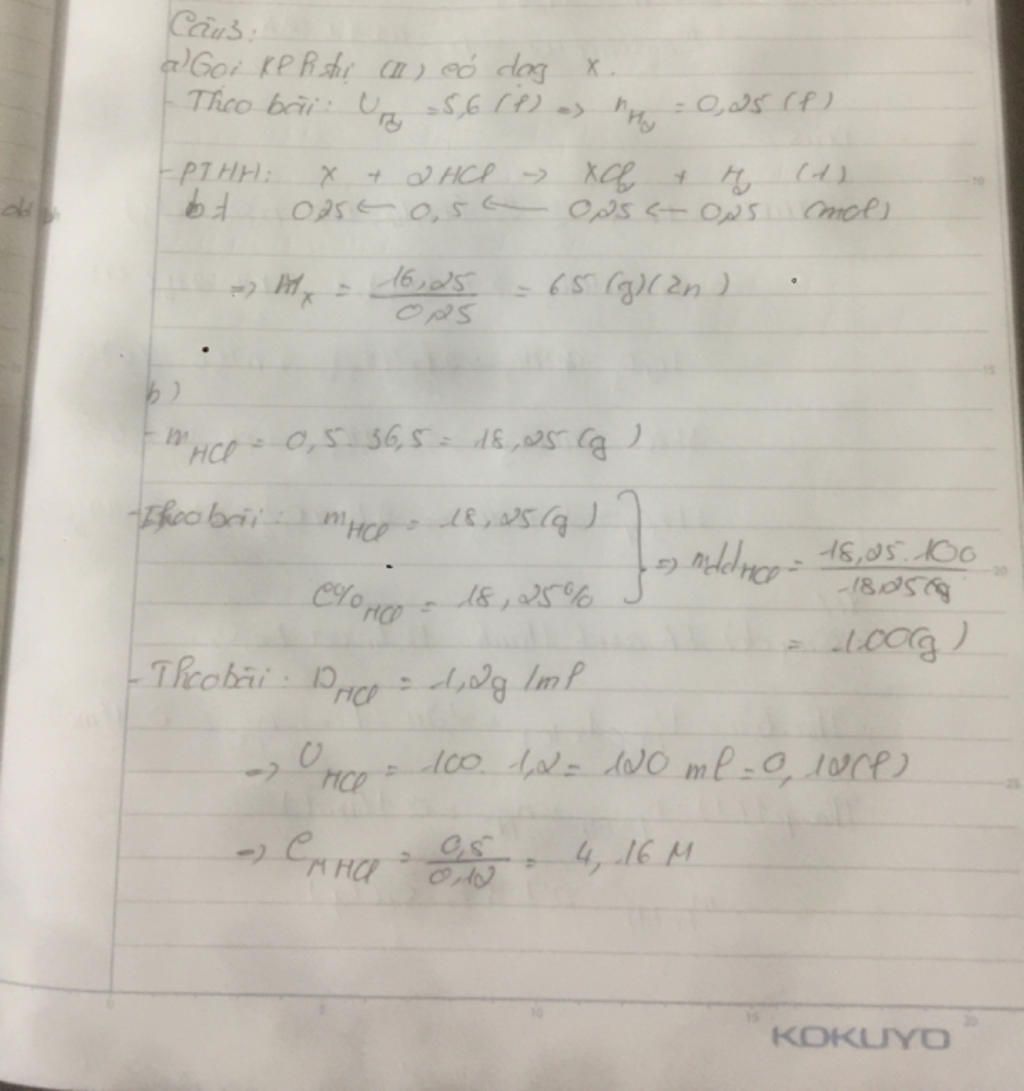 Câu 3:
a) Gọi KL hoá trị (II) có dạng X.
- Theo bài: V_H₂ = 5,6 (l) => n_H₂ = 0,25 (l)
- PTHH: X + 2HCl -> XCl₂ + H₂ (1)
0,25 <- 0,5 <- 0,25 <- 0,25 (mol)
=> M_X = 16,25 / 0,25 = 65 (g) (Zn)
b)
- m_HCl = 0,5 . 36,5 = 18,25 (g)
- Theo bài: m_HCl = 18,25 (g)
C%_HCl = 18,25%
=> mdd_HCl = 18,25 . 100 / 18,25 (g
= 100 (g)
- Theo bài: D_HCl = 1,2g /ml
=> V_HCl = 100 . 1,2 = 120 ml = 0,12 (l)
=> C_M HCl = 0,5 / 0,12 = 4,16 M
5
10
15
20
10
15
20
25
KOKUYO